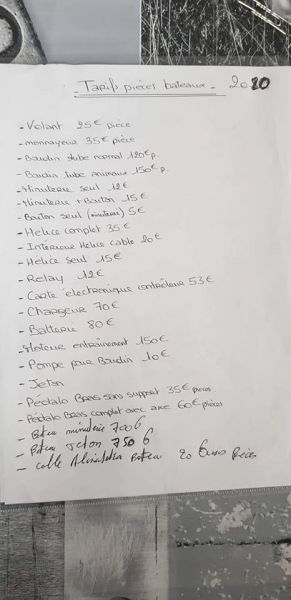 - Tarifs pièces bateaux - 2020
- Volant 25€ pièce
- monnayeur 35€ pièce
- Boudin tube normal 120€ p.
- Boudin tube animaux 150€ p.
- Minuterie seul 12€
- Minuterie + Bouton 15€
- Bouton seul (minuterie) 5€
- Hélice complet 35€
- Intérieur Hélice cable 20€
- Hélice seul 15€
- Relay 12€
- Carte électronique contrôleur 53€
- Chargeur 70€
- Batterie 80€
- Moteur entraînement 150€
- Pompe pour Boudin 10€
- Jeton
- Pédalo Bras sans support 35€ pièces
- Pédalo Bras complet avec axe 60€ pièces
- Bateau minuterie 700€
- Bateau Jeton 750€
- cable Bateau 20 Euros pièces